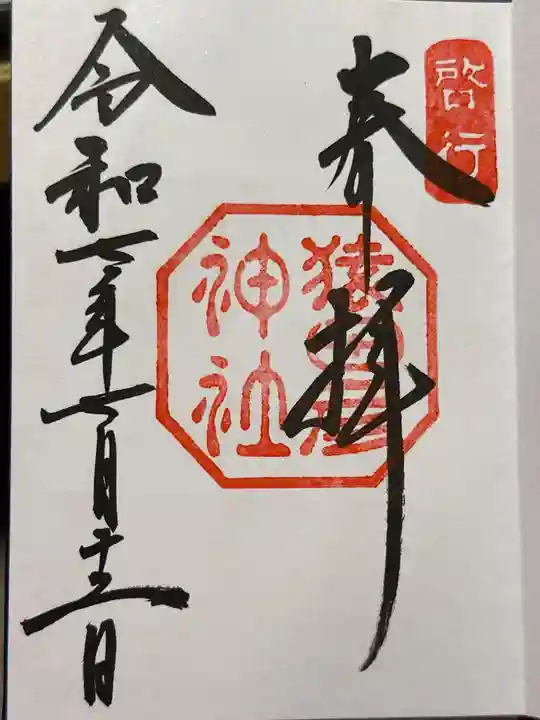 啓行
奉拝
猿田彦
神社
令和七年七月十三日